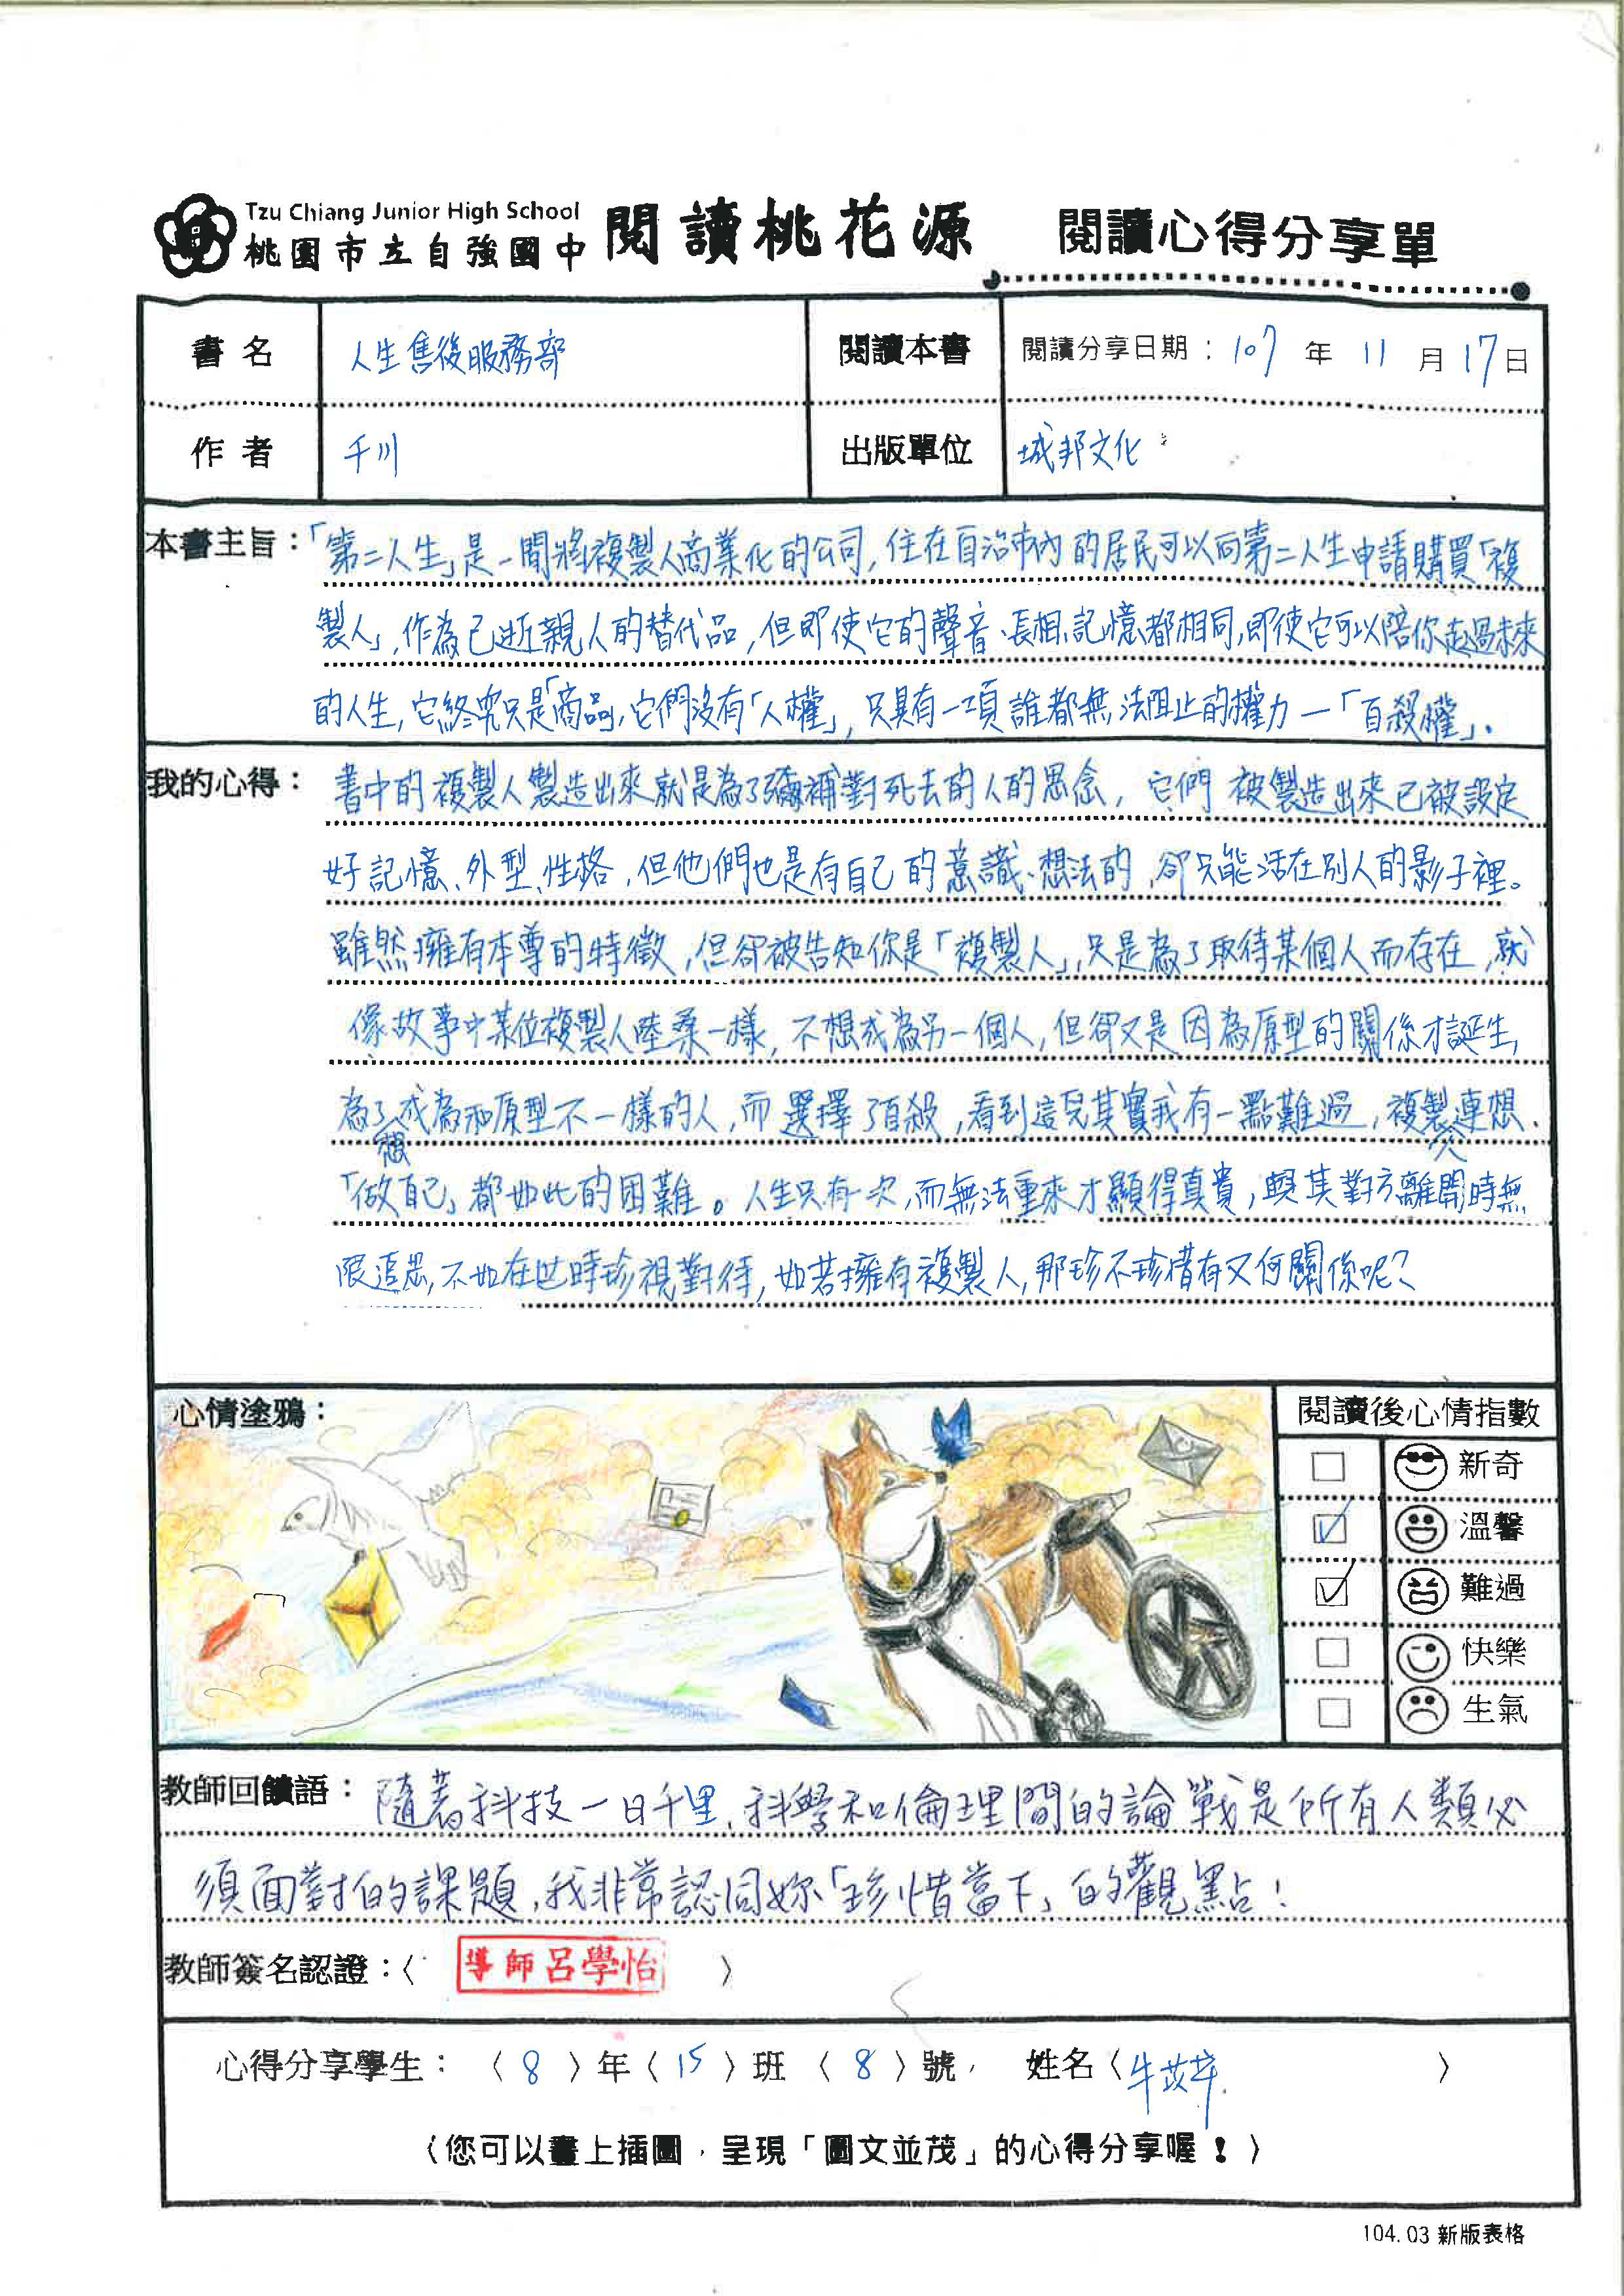 Tzu Chiang Junior High School
桃園市立自強國中 閱讀桃花源 閱讀心得分享單
書名 人生售後服務部 閱讀本書 閱讀分享日期：107年11月17日
作者 千川 出版單位 城邦文化
本書主旨：「第二人生」是一間將複製人商業化的公司，住在自治市內的居民可以向第二人生申請購買「複
製人」，作為已逝親人的替代品，但即使它的聲音、長相、記憶都相同，即使它可以陪你走過未來
的人生，它終究只是「商品」，它們沒有「人權」，只具有一項誰都無法阻止的權力—「自殺權」。
我的心得：書中的複製人製造出來就是為了彌補對死去的人的思念，它們被製造出來已被設定
好記憶、外型、性格，但他們也是有自己的意識、想法的，卻只能活在別人的影子裡。
雖然擁有本尊的特徵，但卻被告知你是「複製人」，只是為了取待某個人而存在，就
像故事中某位複製人陸桑一樣，不想成為另一個人，但卻又是因為原型的關係才誕生，
為了成為和原型不一樣的人，而選擇了自殺，看到這兒其實我有一點難過，複製人連想
想「做自己」都如此的困難。人生只有一次，而無法重來才顯得真貴，與其對方離開時無
限追思，不如在世時珍視對待，如若擁有複製人，那珍不珍惜有又何關係呢？
心情塗鴉：
閱讀後心情指數
新奇
溫馨
難過
快樂
生氣
教師回饋語：隨著科技一日千里，科學和倫理間的論戰是所有人類必
須面對的課題，我非常認同妳「珍惜當下」的觀點！
教師簽名認證：〈 導師呂學怡 〉
心得分享學生：〈8〉年〈15〉班〈8〉號， 姓名〈牛苡芊〉
〈您可以畫上插圖，呈現「圖文並茂」的心得分享喔！〉
104.03 新版表格